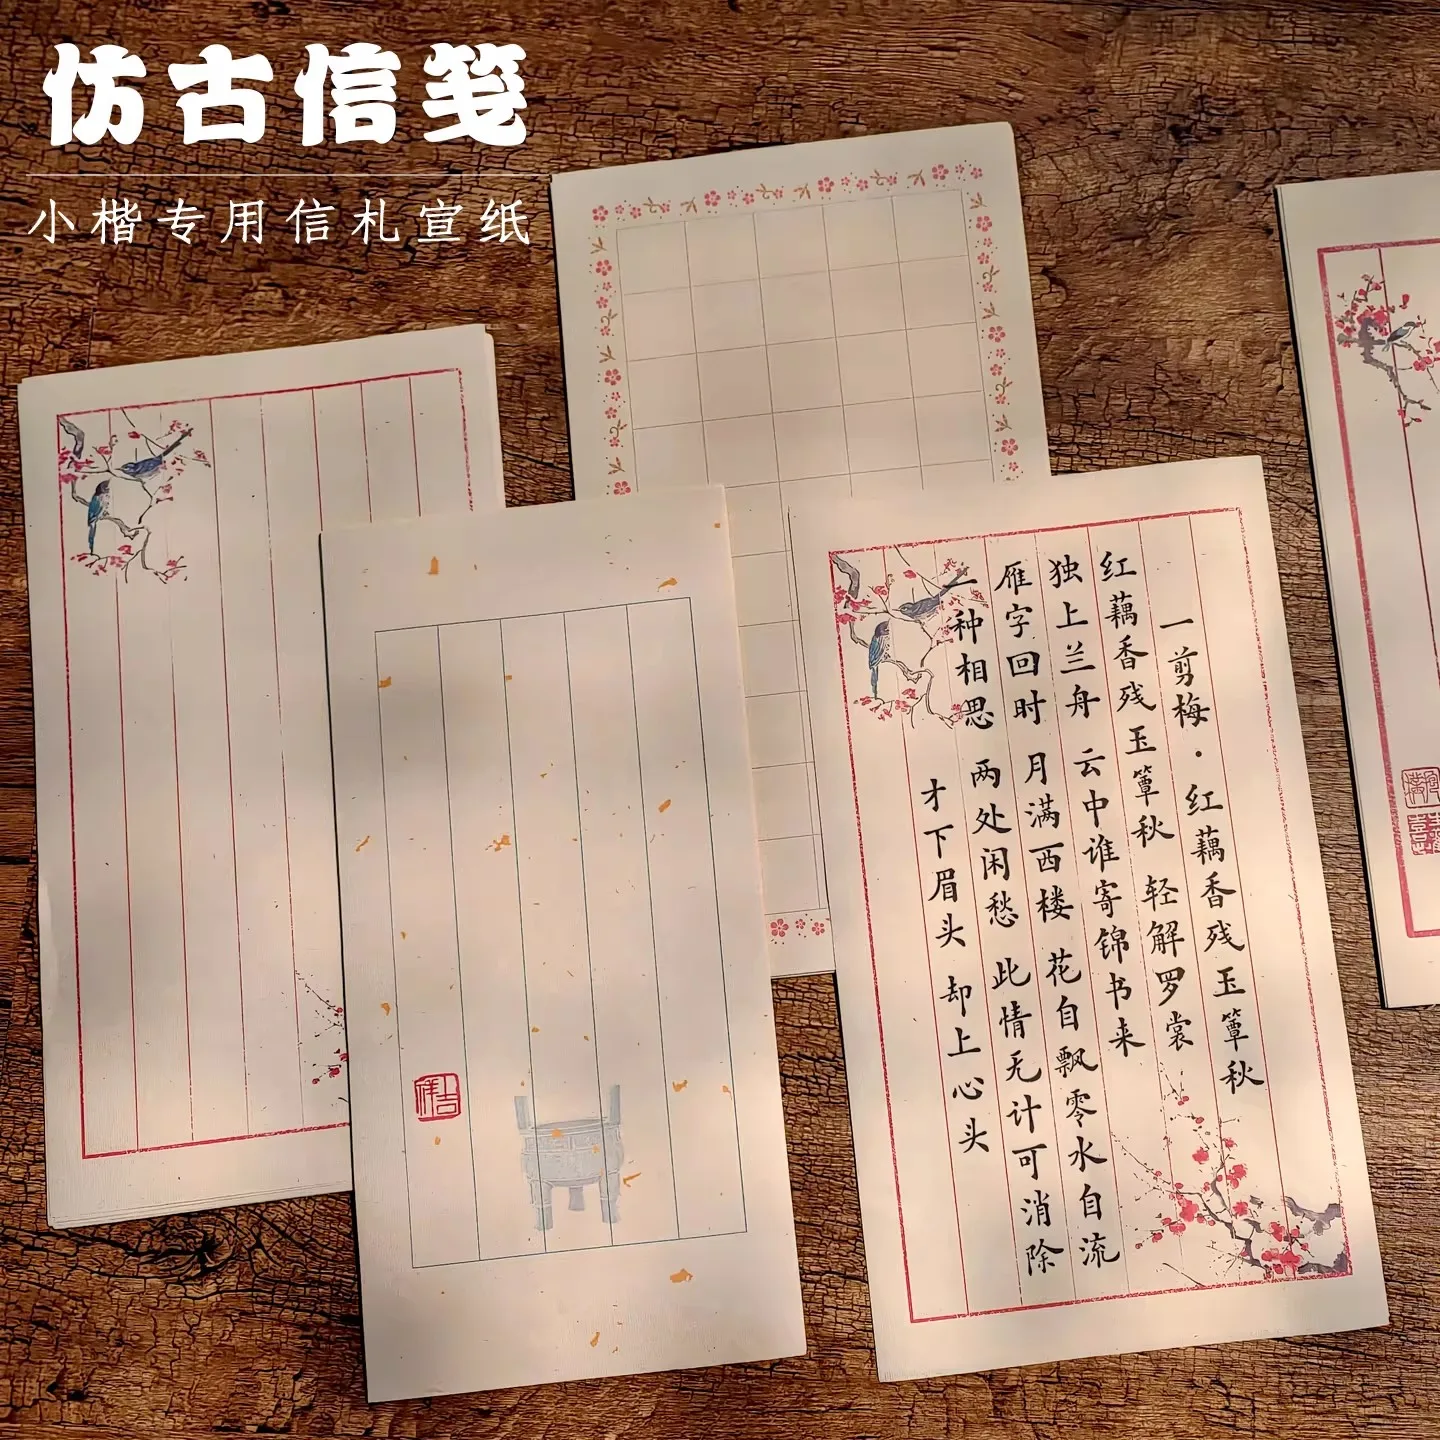 仿古信笺
小楷专用信札宣纸
一剪梅·红藕香残玉簟秋
红藕香残玉簟秋 轻解罗裳
独上兰舟 云中谁寄锦书来
雁字回时 月满西楼 花自飘零水自流
一种相思 两处闲愁 此情无计可消除
才下眉头 却上心头
吉祥